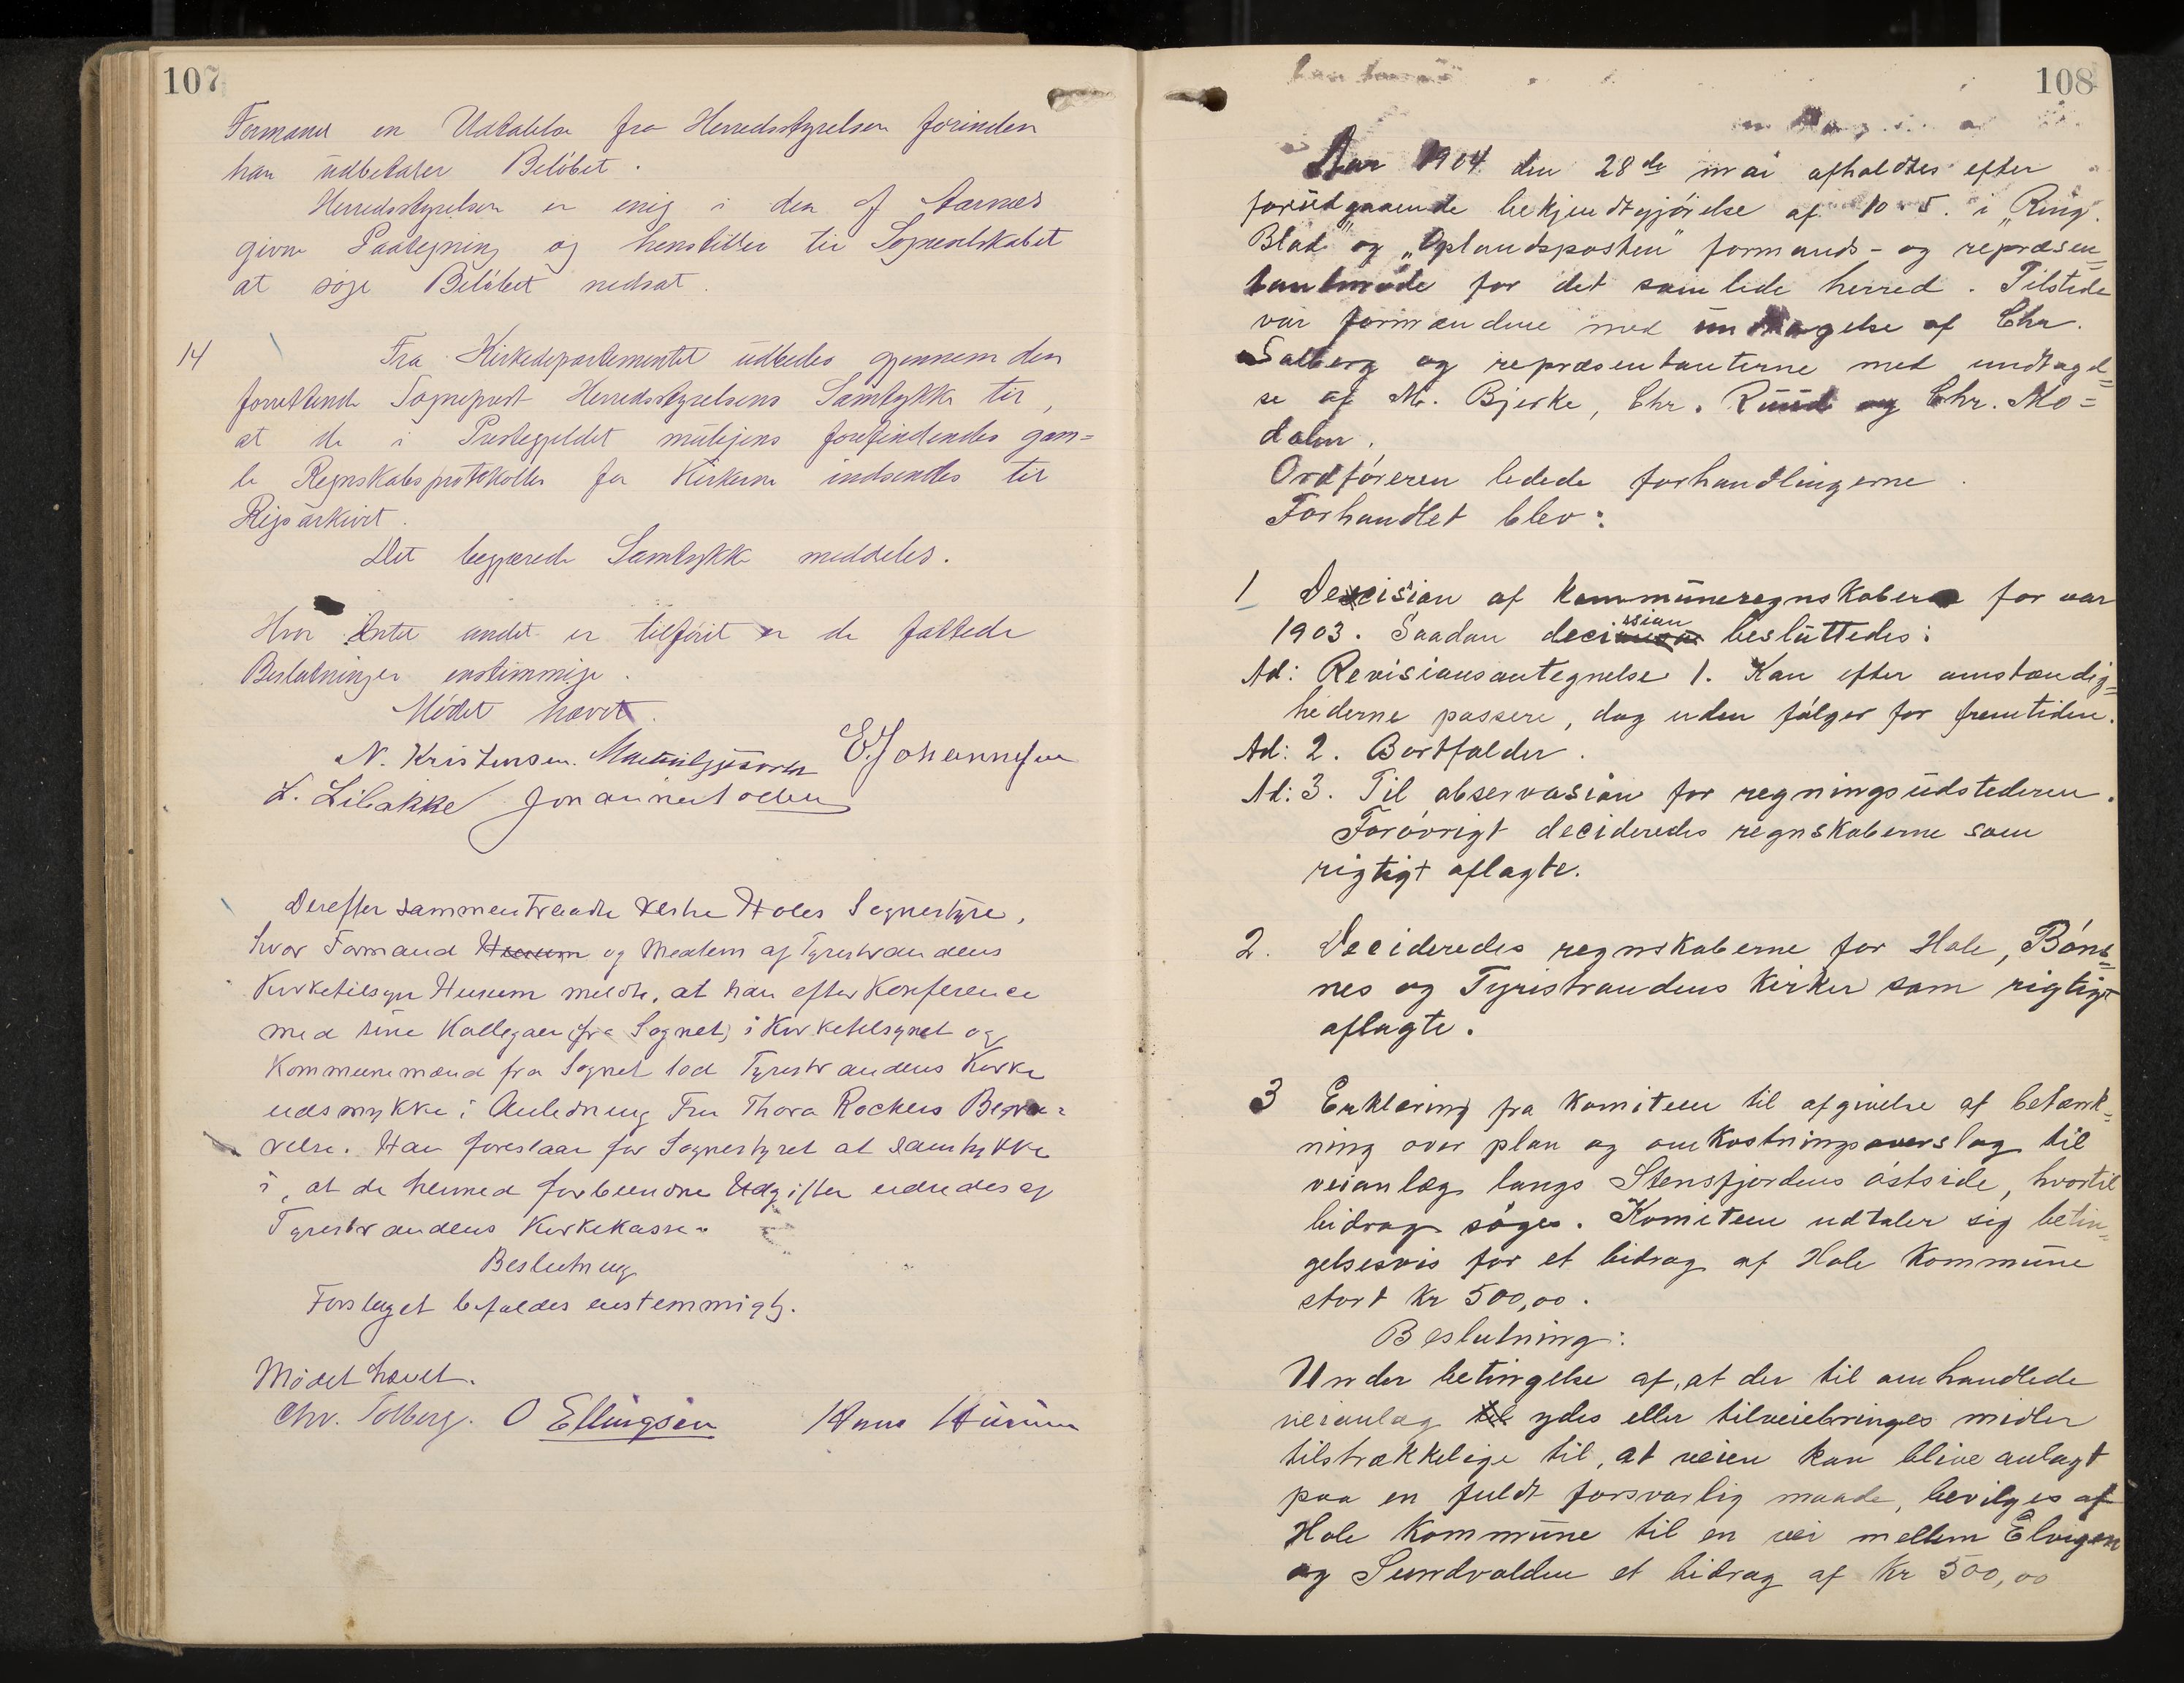 107
Formand en Udtalelse fra Herredsstyrelsen forinden
han udbetaler Beløbet.
Herredsstyrelsen er enig i den af Aarnes
givne Paategning og henstiller til Sogneselskabet
at søge Beløbet nedsat.
14 Fra Kirkedepartementet udbedes gjennem den
forrettende Sogneprest Herredsstyrelsens Samtykke til,
at de i Prestegjeldet muligens forefindendes gam=
le Regnskabsprotokoller for Kirkerne indsendes til
Rigsarkivet.
Det begjærede Samtykke meddeles.
Hvor Intet andet er tilført er de fattede
Beslutninger enstimmige.
Mødet hævet.
N. Kristensen. E. Johannesen
L. Libakke
Derefter sammentraadte Vestre Holes Sognestyre,
hvor Formand Husum og Medlem af Tyristrandens
Kirketilsyn Husum meldte, at han efter Konference
med sine Kollegaer (fra Sognet) i Kirketilsynet og
Kommunemænd fra Sognet lod Tyristrandens Kirke
udsmykke i Anledning Fru Thora Rockers Begra=
velse. Han foreslaar for Sognestyret at samtykke
i, at de hermed forbundne Udgifter udredes af
Tyristrandens Kirkekasse.
Beslutning
Forslaget bifaldes enstemmigt.
Mødet hævet.
Chr. Solberg. O Ellingsen Hans Husum
108
Aar 1904 den 28de mai afholdtes efter
forudgaaende bekjendtgjørelse af 10-5. i „Ring.
Blad" og „Oplandsposten" formands- og repræsen=
tantmøde for det samlede herred. Tilstede
var formændene med undtagelse af Chr.
Solberg og repræsentanterne med undtagel=
se af M. Bjerke, Chr. Ruud og Chr. Mo=
dalen.
Ordføreren ledede forhandlingerne.
Forhandlet blev:
1 Decision af kommuneregnskaberne for aar
1903. Saadan decission besluttedes:
Ad: Revisionsantegnelse 1. Kan efter omstændig=
hederne passere, dog uden følger for fremtiden.
Ad: 2. Bortfalder.
Ad: 3. Til observasion for regningsudstederen.
Forøvrigt decideredes regnskaberne som
rigtigt aflagte.
2. Decideredes regnskaberne for Hole, Bøns=
nes og Tyristrandens kirker som rigtigt
aflagte.
3 Erklæring fra komiteen til afgivelse af betænk=
ning over plan og omkostningsoverslag til
veianlæg langs Stensfjordens østside, hvortil
bidrag søges. Komiteen udtaler sig betin=
gelsesvis for et bidrag af Hole kommune
stort kr 500,00.
Beslutning:
Under betingelse af, at der til omhandlede
veianlæg til ydes eller tilveiebringes midler
tilstrækkelige til, at veien kan blive anlagt
paa en fuldt forsvarlig maade, bevilges af
Hole kommune til en vei mellem Elvigen
og Sundvolden et bidrag af kr 500,00